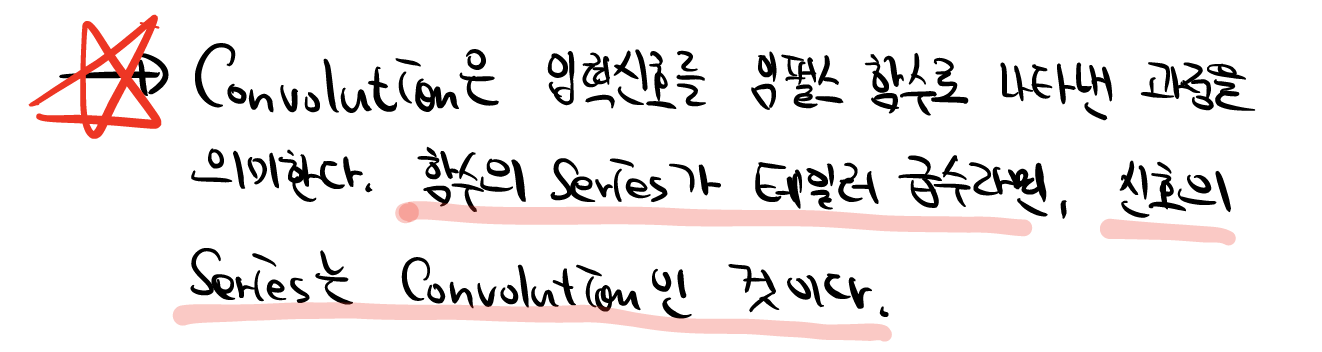 → Convolution은 입력신호를 임펄스 함수로 나타낸 과정을
의미한다. 함수의 Series가 테일러 급수라면, 신호의
Series는 Convolution인 것이다.